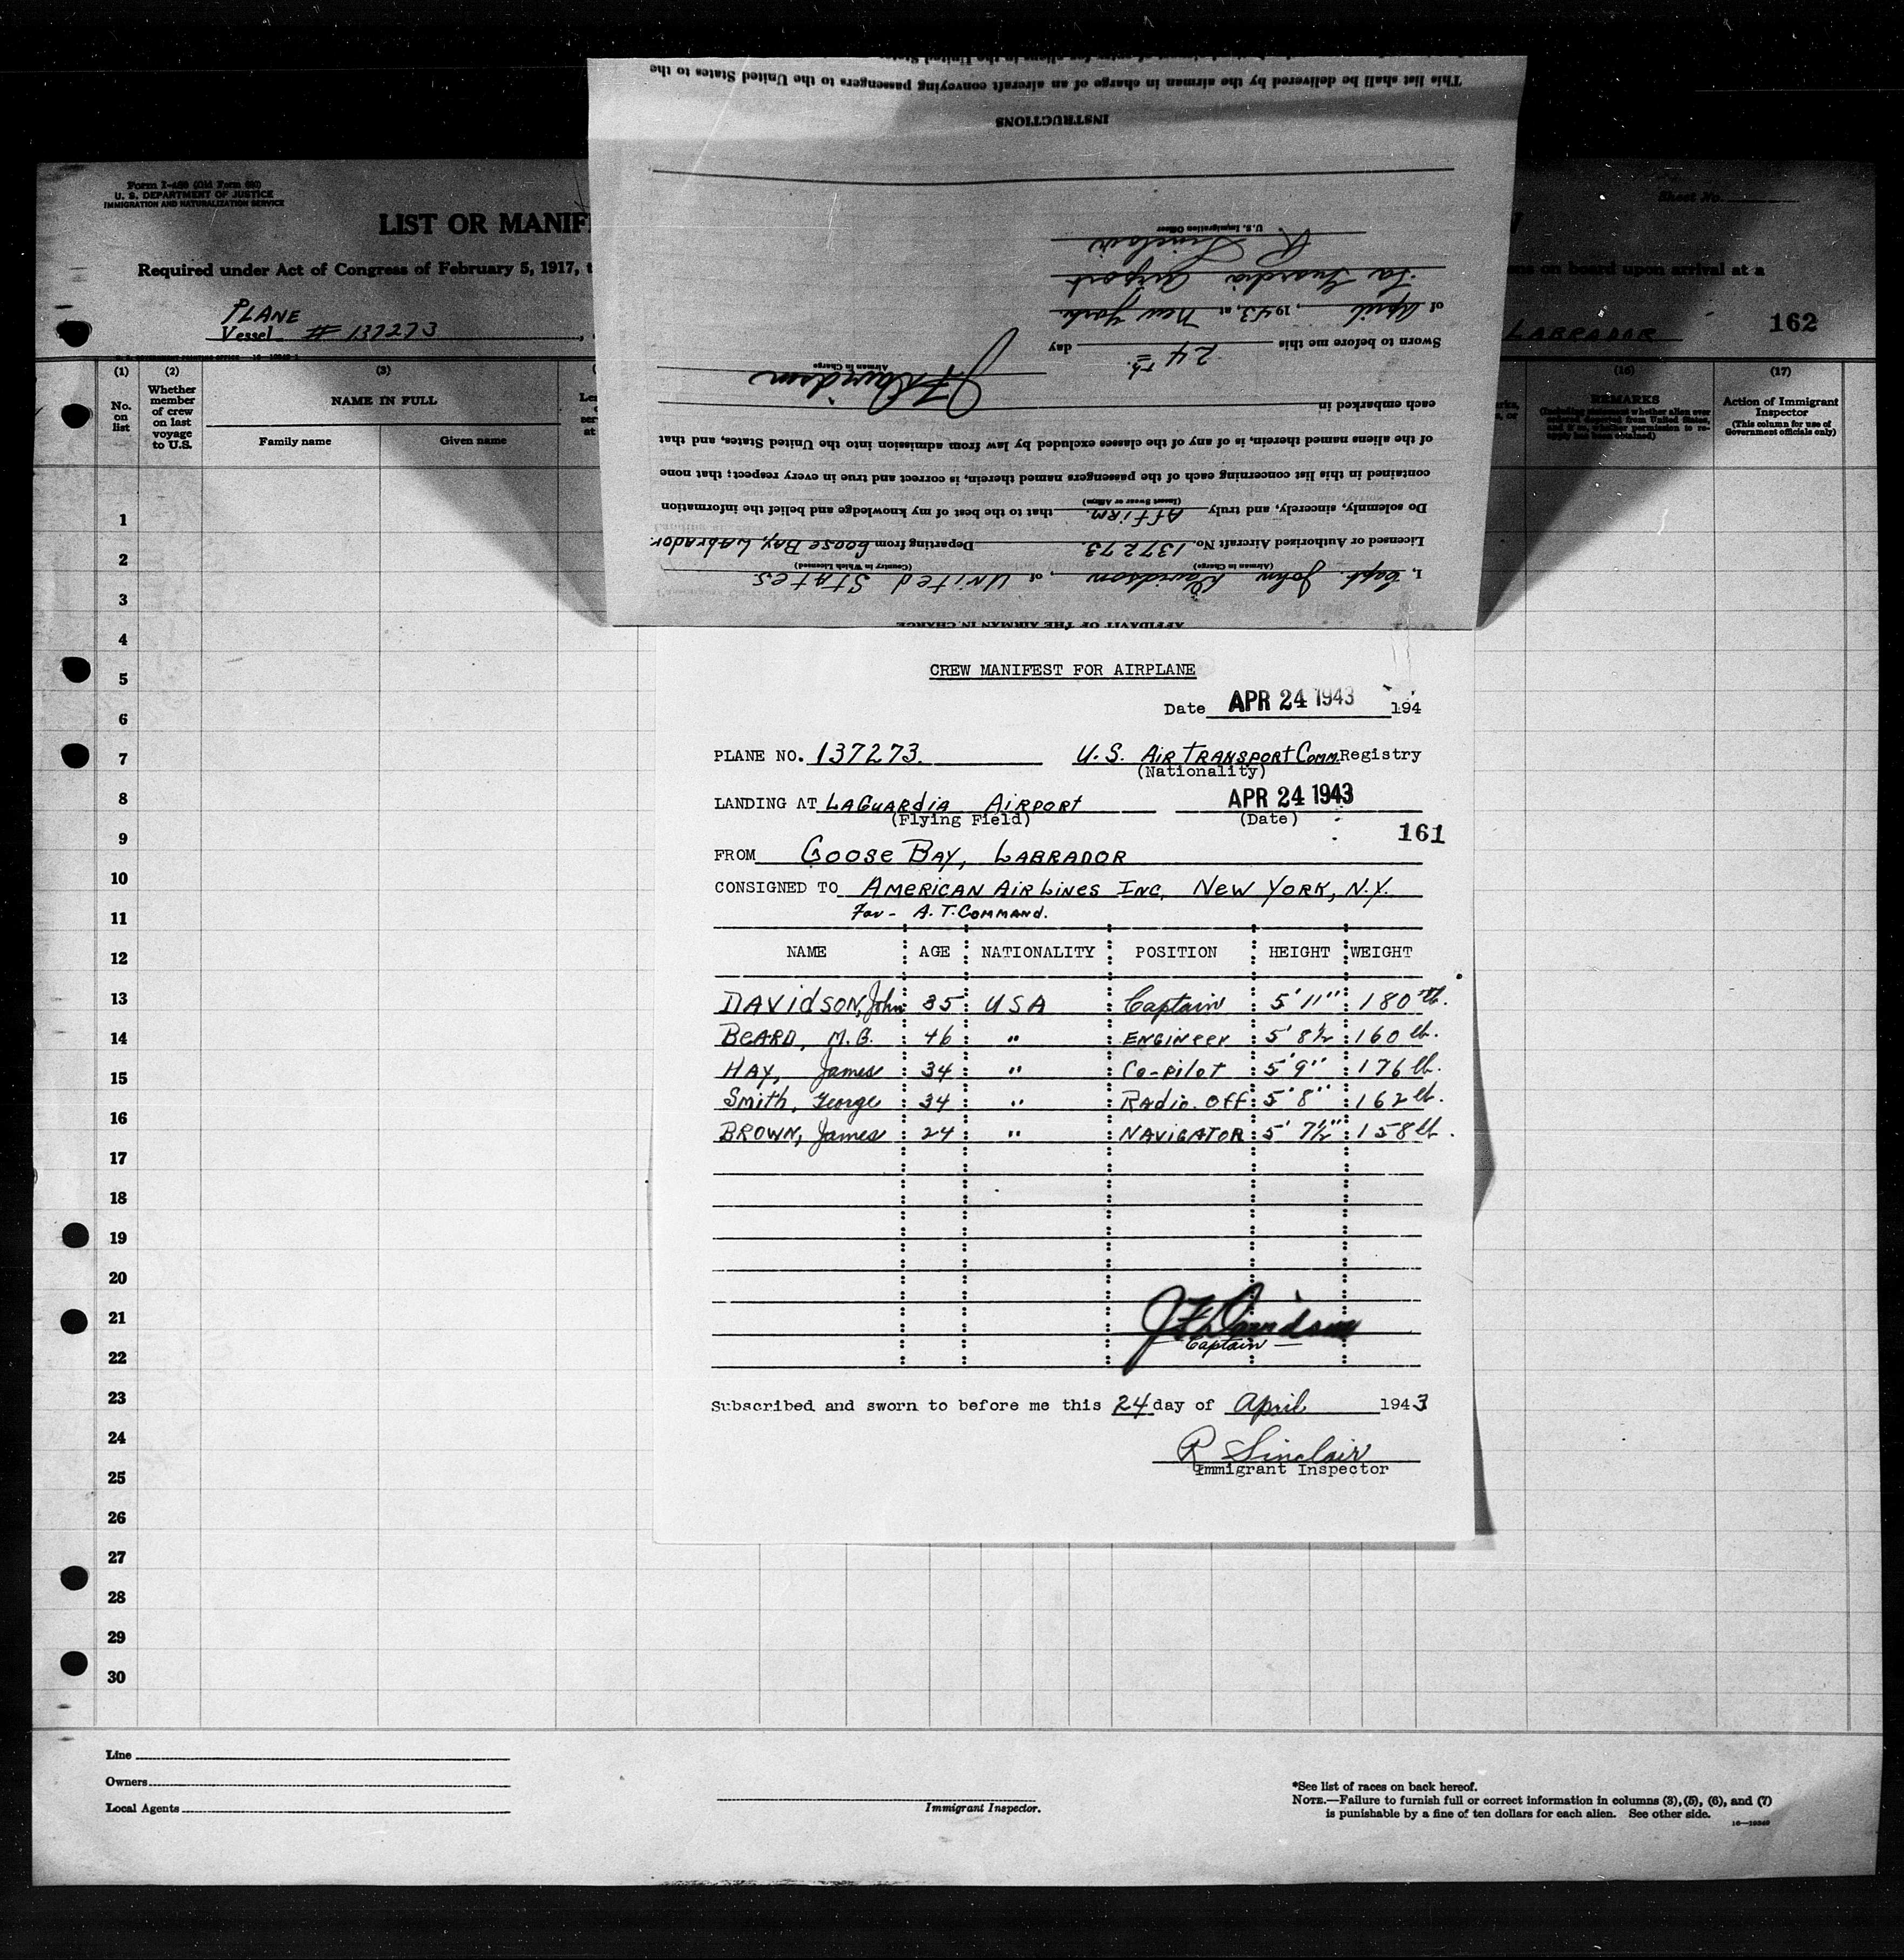 This list shall be delivered by the airman in charge of an aircraft conveying passengers to the United States to the
INSTRUCTIONS
R Sinclair
U.S. Immigration Officer
La Guardia Airport
of April, 1943, at New York.
Sworn to before me this 24th day
JF Davidson
Airman in Charge
each embarked in
of the aliens named therein, is of any of the classes excluded by law from admission into the United States, and that
contained in this list concerning each of the passengers named therein, is correct and true in every respect; that none
Do solemnly, sincerely, and truly Affirm. that to the best of my knowledge and belief the information
(Insert Swear or Affirm)
Licensed or Authorized Aircraft No. 137273. Departing from Goose Bay, Labrador.
I, Capt. John Davidson, of United States
(Airman in Charge) (Country in Which Licensed)
AFFIDAVIT OF THE AIRMAN IN CHARGE
Form I-480 (Old Form 680)
U. S. DEPARTMENT OF JUSTICE
IMMIGRATION AND NATURALIZATION SERVICE
Sheet No.
LIST OR MANIF
Required under Act of Congress of February 5, 1917, t
on board upon arrival at a
PLANE
Vessel # 137273
LABRADOR 162
(1) (2) (3) (16) (17)
No. on list
Whether member of crew on last voyage to U.S.
NAME IN FULL
Family name Given name
REMARKS
Action of Immigrant Inspector
(This column for use of Government officials only)
1
2
3
4
5
6
7
8
9
10
11
12
13
14
15
16
17
18
19
20
21
22
23
24
25
26
27
28
29
30
CREW MANIFEST FOR AIRPLANE
Date APR 24 1943 194
PLANE NO. 137273. U.S. AIR TRANSPORT COMM. Registry
(Nationality)
LANDING AT LAGUARDIA AIRPORT APR 24 1943
(Flying Field) (Date)
161
FROM GOOSE BAY, LABRADOR
CONSIGNED TO AMERICAN AIR LINES INC, NEW YORK, N.Y.
For - A.T. COMMAND.
NAME AGE NATIONALITY POSITION HEIGHT WEIGHT
DAVIDSON, John 35 USA Captain 5' 11" 180 lb.
BEARD, M.G. 46 " ENGINEER 5' 8½ 160 lb.
HAY, James 34 " Co-pilot 5' 9" 176 lb.
Smith, George 34 " Radio. Off 5' 8" 162 lb.
BROWN, James 24 " NAVIGATOR 5' 7½" 158 lb.
JF Davidson
Captain
Subscribed and sworn to before me this 24 day of April 1943
R Sinclair
Immigrant Inspector
Line
Owners
Local Agents
Immigrant Inspector.
*See list of races on back hereof.
NOTE.—Failure to furnish full or correct information in columns (3), (5), (6), and (7)
is punishable by a fine of ten dollars for each alien. See other side.